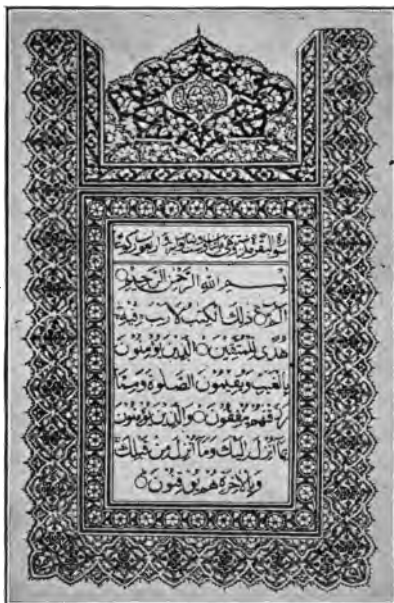 سورة البقرة مدنية
بسم الله الرحمن الرحيم
الم ذلك الكتب لا ريب فيه
هدى للمتقين الذين يؤمنون
بالغيب ويقيمون الصلوة ومما
رزقنهم ينفقون والذين يؤمنون
بما انزل اليك وما انزل من قبلك
وبالاخرة هم يوقنون